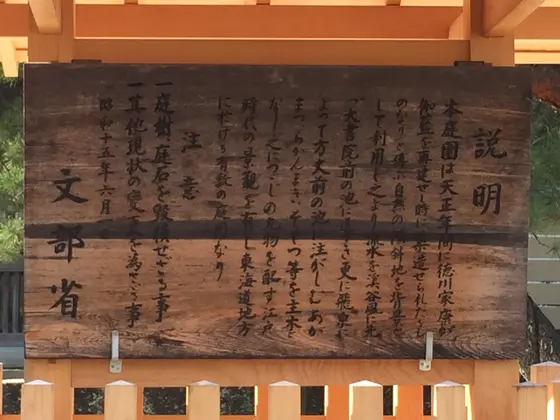 説明
本庭園は天正年間に徳川家康が
伽藍を再建せし時に築造せられたるも
のなりと傳ふ自然の傾斜地を背景と
して利用し之より流水を溪谷風に先
つ大書院前の池に導き更に飛泉に
よつて方丈前の池に注がしむあか
まつ、あかがし、そてつ等を主木と
なし之につつじの丸物を配す江戸
時代の景観を有し東海道地方
に於ける有数の庭園なり
注意
一 庭樹庭石を毀損せざる事
一 其他現状の変更を為さざる事
昭和十五年六月一日
文部省